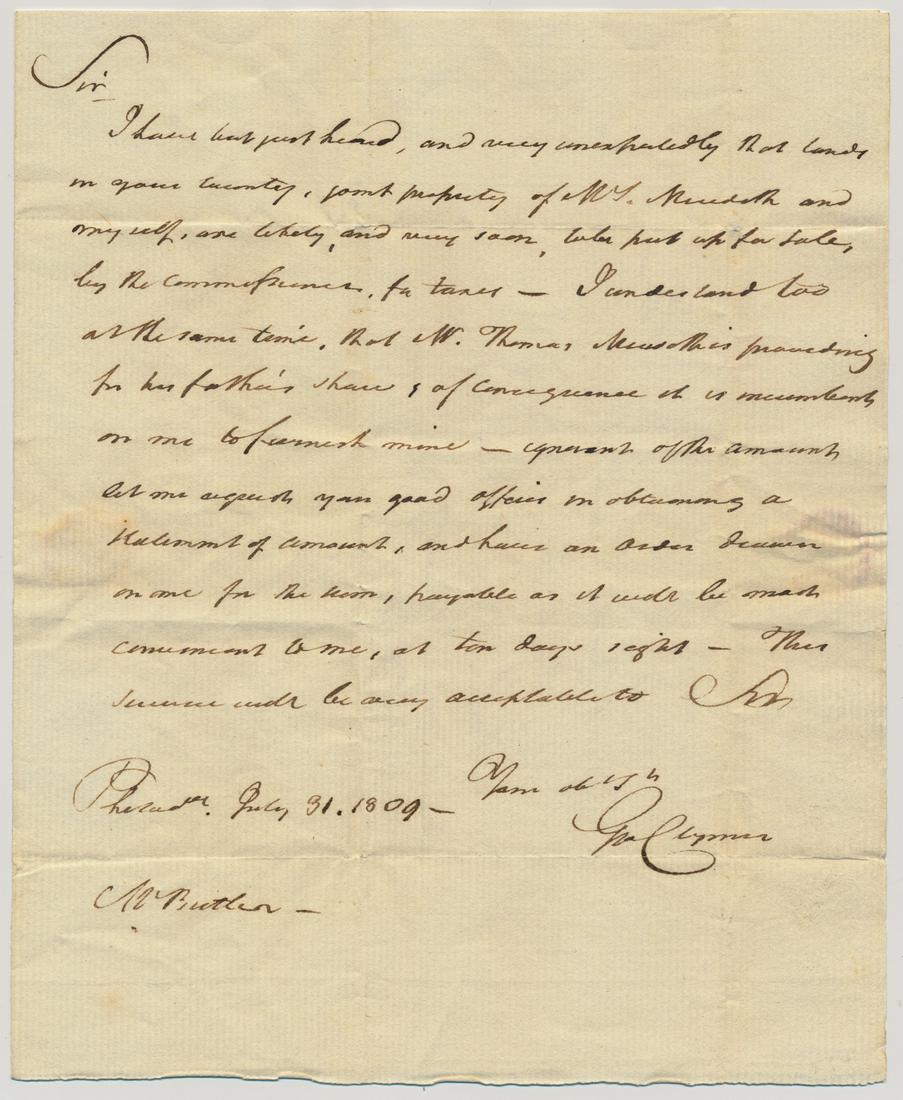 Sir
I have but just heard, and very unexpectedly that lands
in your county, joint property of Mr S. Meredith and
myself, are likely, and very soon, to be put up for sale,
by the Commissioners, for taxes — I understand too
at the same time, that Mr. Thomas Meredith is providing
for his father's share, of consequence it is incumbent
on me to furnish mine — ignorant of the amount
let me request your good offices in obtaining a
statement of amount, and have an order drawn
on me for the sum, payable as it will be most
convenient to me, at ten days sight — This
service will be very acceptable to Sir
Your obt St
Philada. July 31. 1809 —
Geo Clymer
Mr Butler —